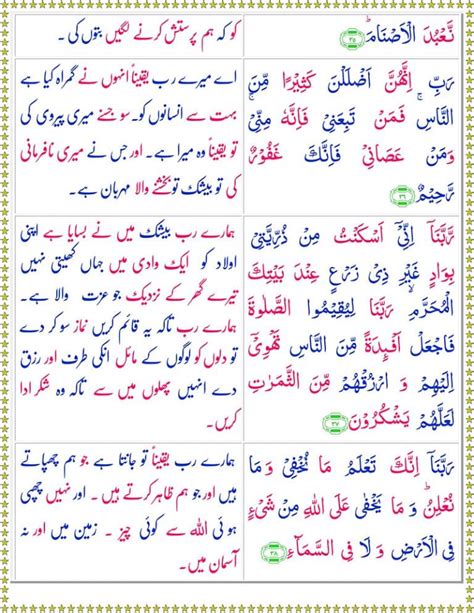 نَّعۡبُدَ الۡاَصۡنَامَؕ ﴿۳۵﴾
کو کہ ہم پرستش کرنے لگیں بتوں کی ۔
رَبِّ اِنَّهُنَّ اَضۡلَلۡنَ كَثِيۡرًا مِّنَ
النَّاسِ‌ۚ فَمَنۡ تَبِعَنِىۡ فَاِنَّهٗ مِنِّىۡ‌ۚ
وَمَنۡ عَصَانِىۡ فَاِنَّكَ غَفُوۡرٌ
رَّحِيۡمٌ ﴿۳۶﴾
اے میرے رب یقیناً انہوں نے گمراہ کیا ہے
بہت سے انسانوں کو۔ سو جسنے میری پیروی کی
تو یقیناً وہ میرا ہے۔ اور جس نے میری نافرمانی
کی تو بیشک تو بخشنے والا مہربان ہے۔
رَبَّنَاۤ اِنِّىۡۤ اَسۡكَنۡتُ مِنۡ ذُرِّيَّتِىۡ
بِوَادٍ غَيۡرِ ذِىۡ زَرۡعٍ عِنۡدَ بَيۡتِكَ
الۡمُحَرَّمِۙ رَبَّنَا لِيُقِيۡمُوا الصَّلٰوةَ
فَاجۡعَلۡ اَفۡـِٕدَةً مِّنَ النَّاسِ تَهۡوِىۡۤ
اِلَيۡهِمۡ وَ ارۡزُقۡهُمۡ مِّنَ الثَّمَرٰتِ
لَعَلَّهُمۡ يَشۡكُرُوۡنَ ﴿۳۷﴾
ہمارے رب بیشک میں نے بسایا ہے اپنی
اولاد کو ایک وادی میں جہاں کھیتی نہیں
تیرے گھر کے نزدیک جو عزت والا ہے۔
ہمارے رب تاکہ یہ قائم کریں نماز سو کر دے
تو دلوں کو لوگوں کے مائل انکی طرف اور رزق
دے انہیں پھلوں میں سے تاکہ وہ شکر ادا
کریں۔
رَبَّنَاۤ اِنَّكَ تَعۡلَمُ مَا نُخۡفِىۡ وَمَا
نُعۡلِنُ‌ؕ وَمَا يَخۡفٰى عَلَى اللّٰهِ مِنۡ شَىۡءٍ
فِى الۡاَرۡضِ وَلَا فِى السَّمَآءِ ﴿۳۸﴾
ہمارے رب یقیناً تو جانتا ہے جو ہم چھپاتے
ہیں اور جو ہم ظاہر کرتے ہیں۔ اور نہیں چھپی
ہوئی اللہ سے کوئی چیز ۔ زمین میں اور نہ
آسمان میں۔